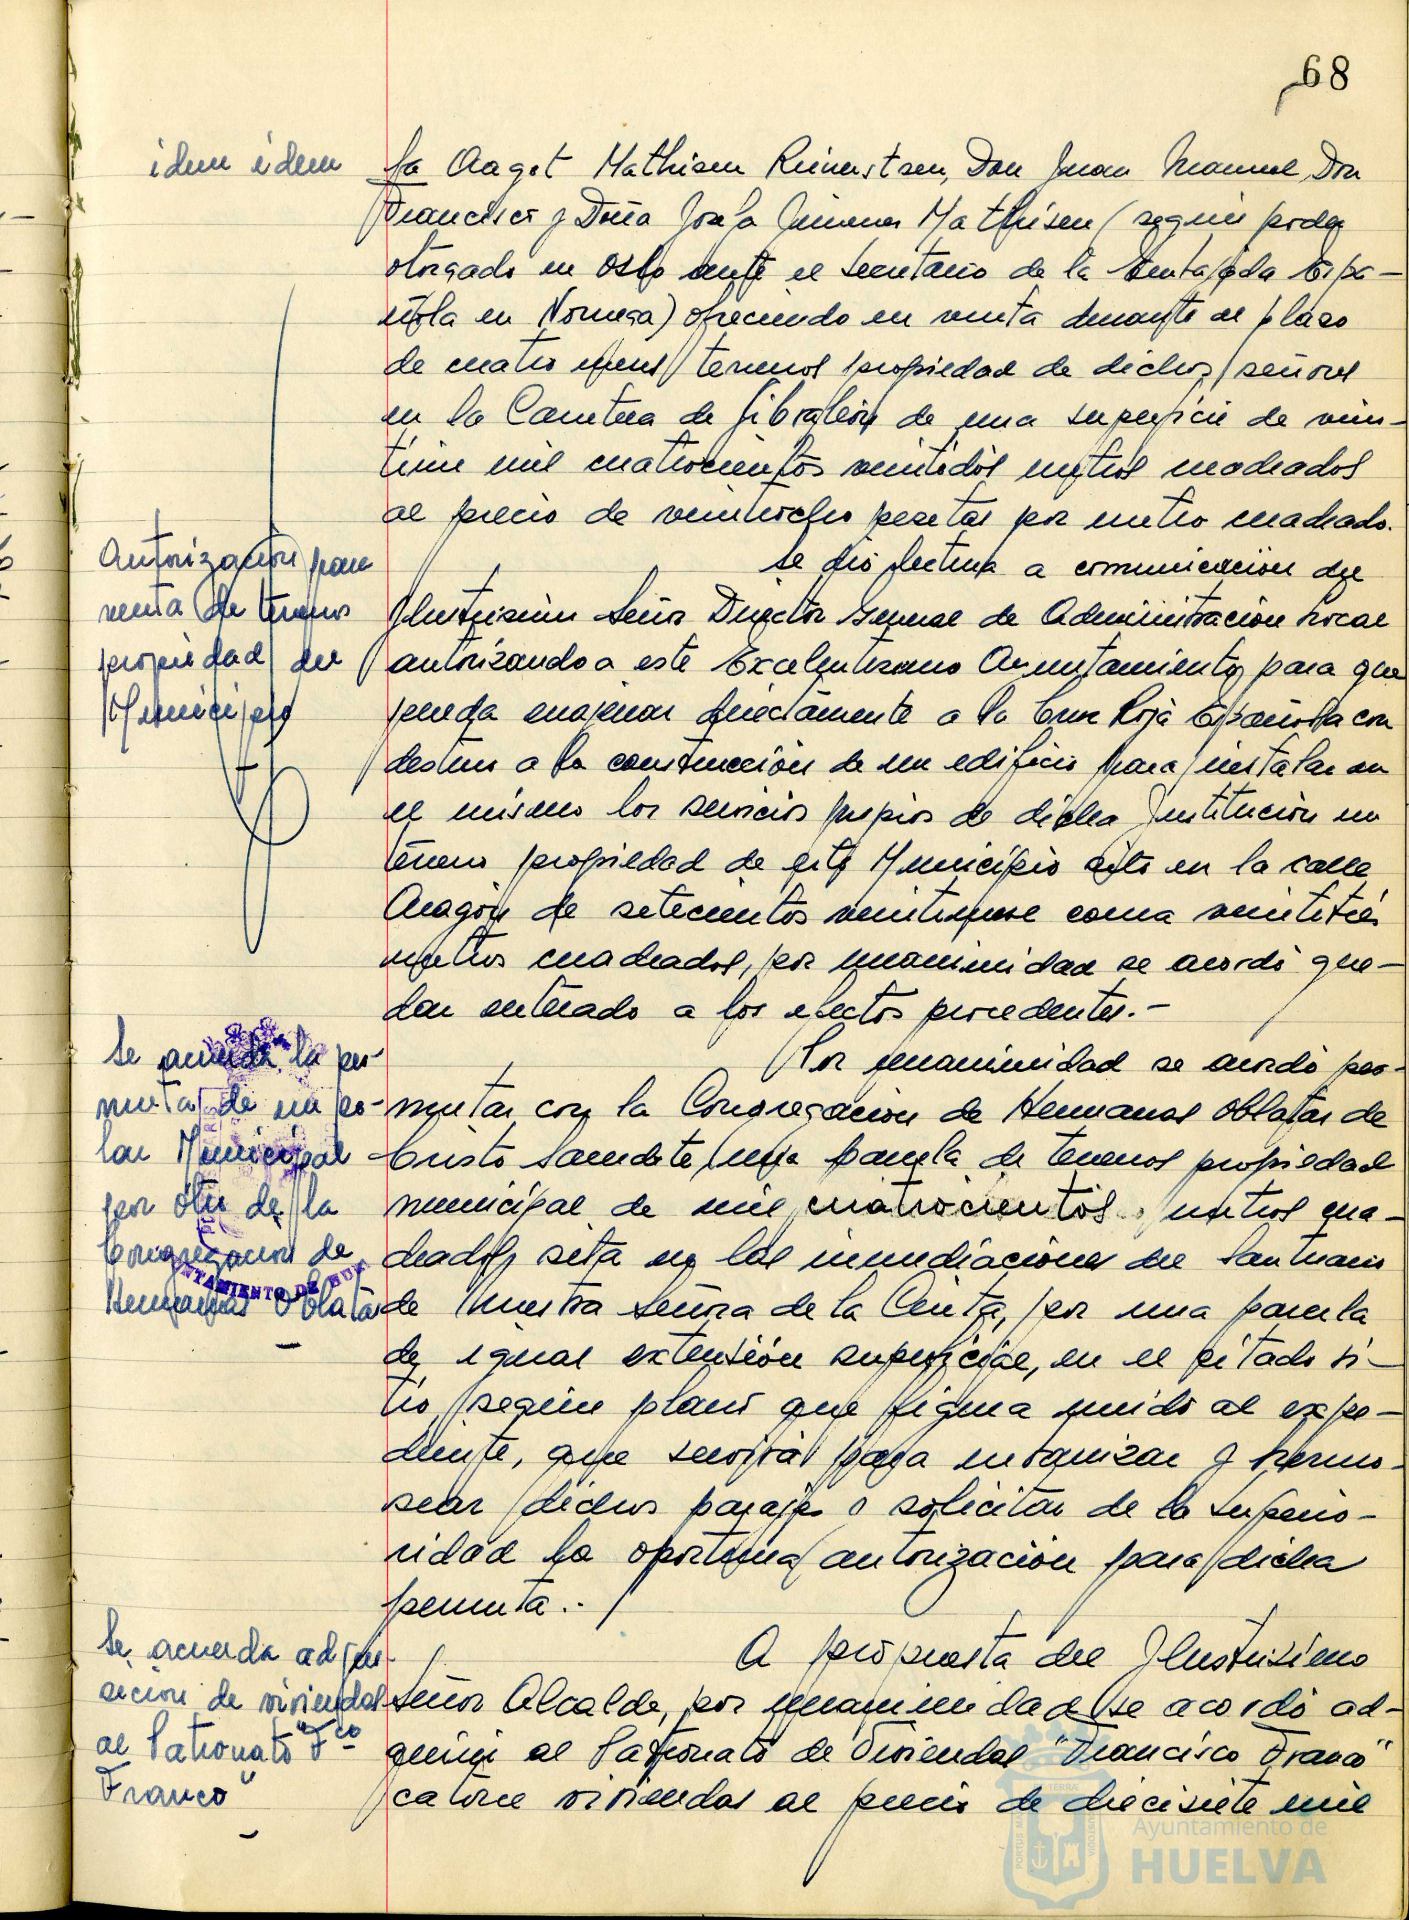 68
idem idem
ña Aagot Mathisen Reinertsen, Don Juan Manuel, Don
Francisco y Doña Josefa Jimenez Mathisen (según poder
otorgado en Oslo ante el Secretario de la Embajada Espa-
ñola en Noruega) ofreciendo en venta durante el plazo
de cuatro meses terrenos propiedad de dichos señores
en la Carretera de Gibraleón de una superficie de vein-
tiun mil cuatrocientos veintidós metros cuadrados
al precio de veintiocho pesetas por metro cuadrado.
Autorización para
venta de terrenos
propiedad del
Municipio
Se dió lectura a comunicación del
Ilustrisimo Señor Director General de Administración Local
autorizando a este Excelentisimo Ayuntamiento para que
pueda enajenar directamente a la Cruz Roja Española con
destino a la construcción de un edificio para instalar en
el mismo los servicios propios de dicha Institución un
terreno propiedad de este Municipio sito en la calle
Aragón de setecientos veintinueve coma veintitrés
metros cuadrados, por unanimidad se acordó que-
dar enterado a los efectos procedentes.-
Se acuerda la per-
muta de un so-
lar Municipal
por otro de la
Congregación de
Hermanas Oblatas
Por unanimidad se acordó per-
mutar con la Congregación de Hermanas Oblatas de
Cristo Sacerdote, una parcela de terrenos propiedad
municipal de mil cuatrocientos metros cua-
drados, sita en las inmediaciones del Santuario
de Nuestra Señora de la Cinta, por una parcela
de igual extensión superficial, en el citado si-
tio, según plano que figura unido al expe-
diente, que servirá para urbanizar y hermo-
sear dichos parajes o solicitar de la Superio-
ridad la oportuna autorización para dicha
permuta.-
AYUNTAMIENTO DE HUELVA
Se acuerda adqui-
sición de viviendas
al Patronato "Fco
Franco"
A propuesta del Ilustrisimo
Señor Alcalde, por unanimidad se acordó ad-
quirir al Patronato de Viviendas "Francisco Franco"
catorce viviendas al precio de diecisiete mil
Ayuntamiento de
HUELVA